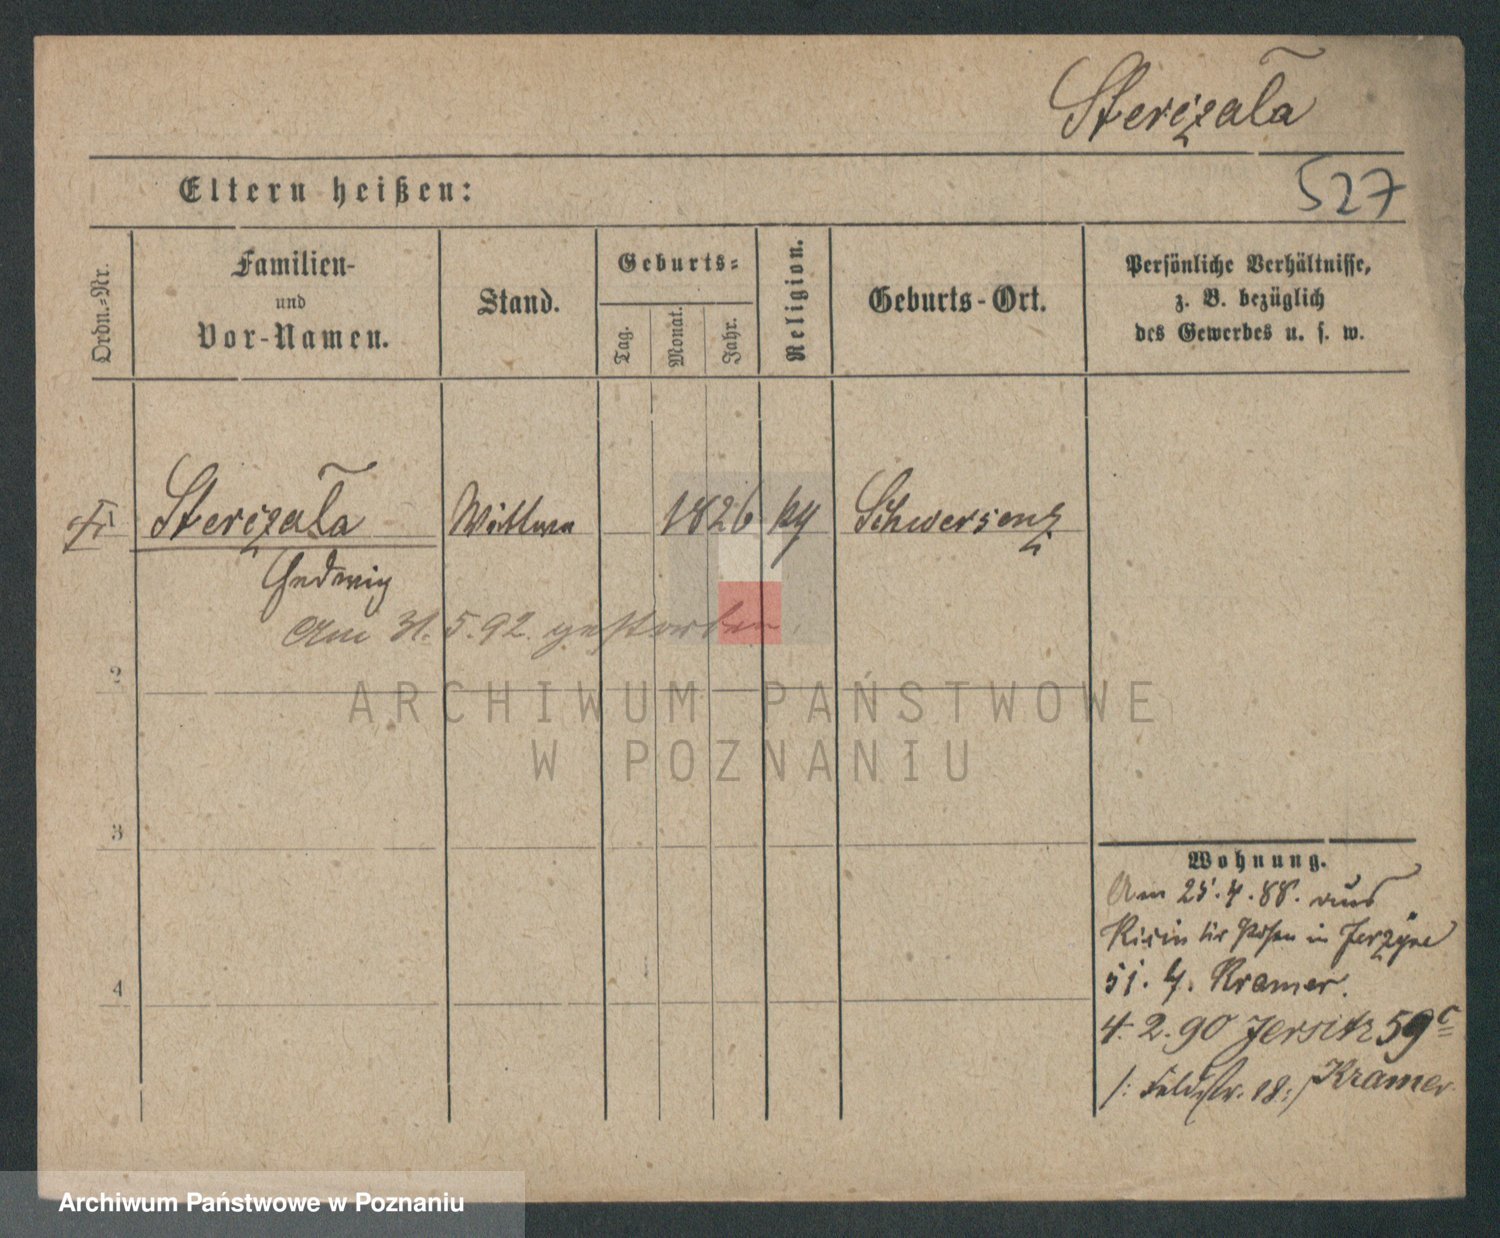 Sterizała
527
Eltern heißen:
Ordn.=Nr.
Familien-
und
Vor-Namen.
Stand.
Geburts=
Tag.
Monat.
Jahr.
Religion.
Geburts-Ort.
Persönliche Verhältnisse,
z. B. bezüglich
des Gewerbes u. s. w.
Sterizała Wittwe 1826 Schwersenz
Hedwig
Am 31.5.92. gestorben.
2
ARCHIWUM PAŃSTWOWE
W POZNANIU
3
4
Wohnung.
Am 25.4.88. aus
Posen in Jerzyce
51. Kramer.
4.2.90 Jersitz 59c
/: Feldstr. 18:/ Kramer
Archiwum Państwowe w Poznaniu